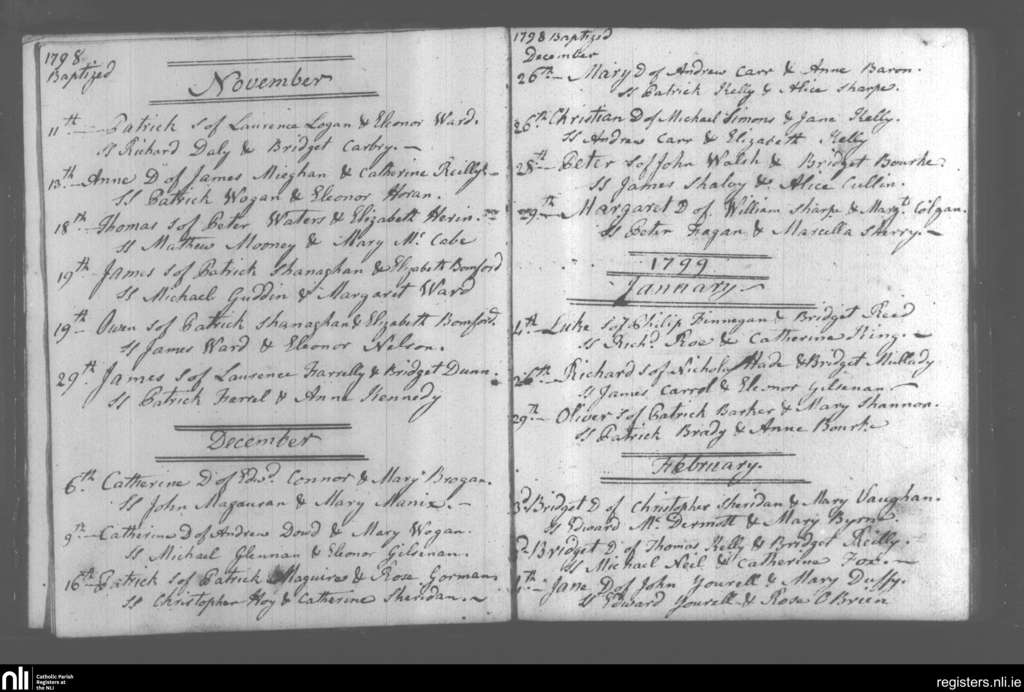 1798
Baptized
November
11th — Patrick S of Laurence Logan & Eleonor Ward.
Ss Richard Daly & Bridget Carbry. —
13th — Anne D of James Mieghan & Catherine Reilly. —
Ss Patrick Wogan & Eleonor Horan.
18th Thomas S of Peter Waters & Elizabeth Herin. —
Ss Mathew Mooney & Mary Mc Cabe
19th James S of Patrick Shanaghan & Elizabeth Bomford
Ss Michael Guddin & Margaret Ward
19th — Owen S of Patrick Shanaghan & Elizabeth Bomford.
Ss James Ward & Eleonor Nelson.
29th. James S of Laurence Farrelly & Bridget Dunn.
Ss Patrick Farrel & Anne Kennedy
December
6th Catherine D of Edwd. Connor & Mary Brogan.
Ss John Magauran & Mary Manix. —
9th — Catherine D of Andrew Doud & Mary Wogan.
Ss Michael Glennan & Eleonor Gilsinan.
16th — Patrick S of Patrick Maguire & Rose Gorman
Ss Christopher Hoy & Catherine Sheridan. —
1798 Baptized
December
26th — Mary D of Andrew Carr & Anne Baron.
Ss Patrick Kelly & Alice Sharpe.
26th Christian D of Michael Simons & Jane Kelly.
Ss Andrew Carr & Elizabeth Kelly
28th — Peter S of John Walsh & Bridget Bourke.
Ss James Shaloy & Alice Cullin.
29th — Margaret D of William Sharpe & Margt. Colgan.
Ss Peter Fagan & Marcella Sherry. —
1799
January —
4th — Luke S of Philip Finnegan & Bridget Reed
Ss Richd. Roe & Catherine King. —
26th — Richard S of Nicholas Wade & Bridget Mullady
Ss James Carrol & Eleonor Gilsenan —
29th — Oliver S of Patrick Barker & Mary Shannon.
Ss Patrick Brady & Anne Bourke
February.
3d Bridget D of Christopher Sheridan & Mary Vaughan.
Ss Edward Mc Dermott & Mary Byrne.
Bridget D of Thomas Kelly & Bridget Reilly.
Ss Michael Neil & Catherine Fox. —
Jane D of John Yourell & Mary Duffy.
Ss Edward Yourell & Rose O'Brien
nli
Catholic Parish
Registers at
the NLI
registers.nli.ie